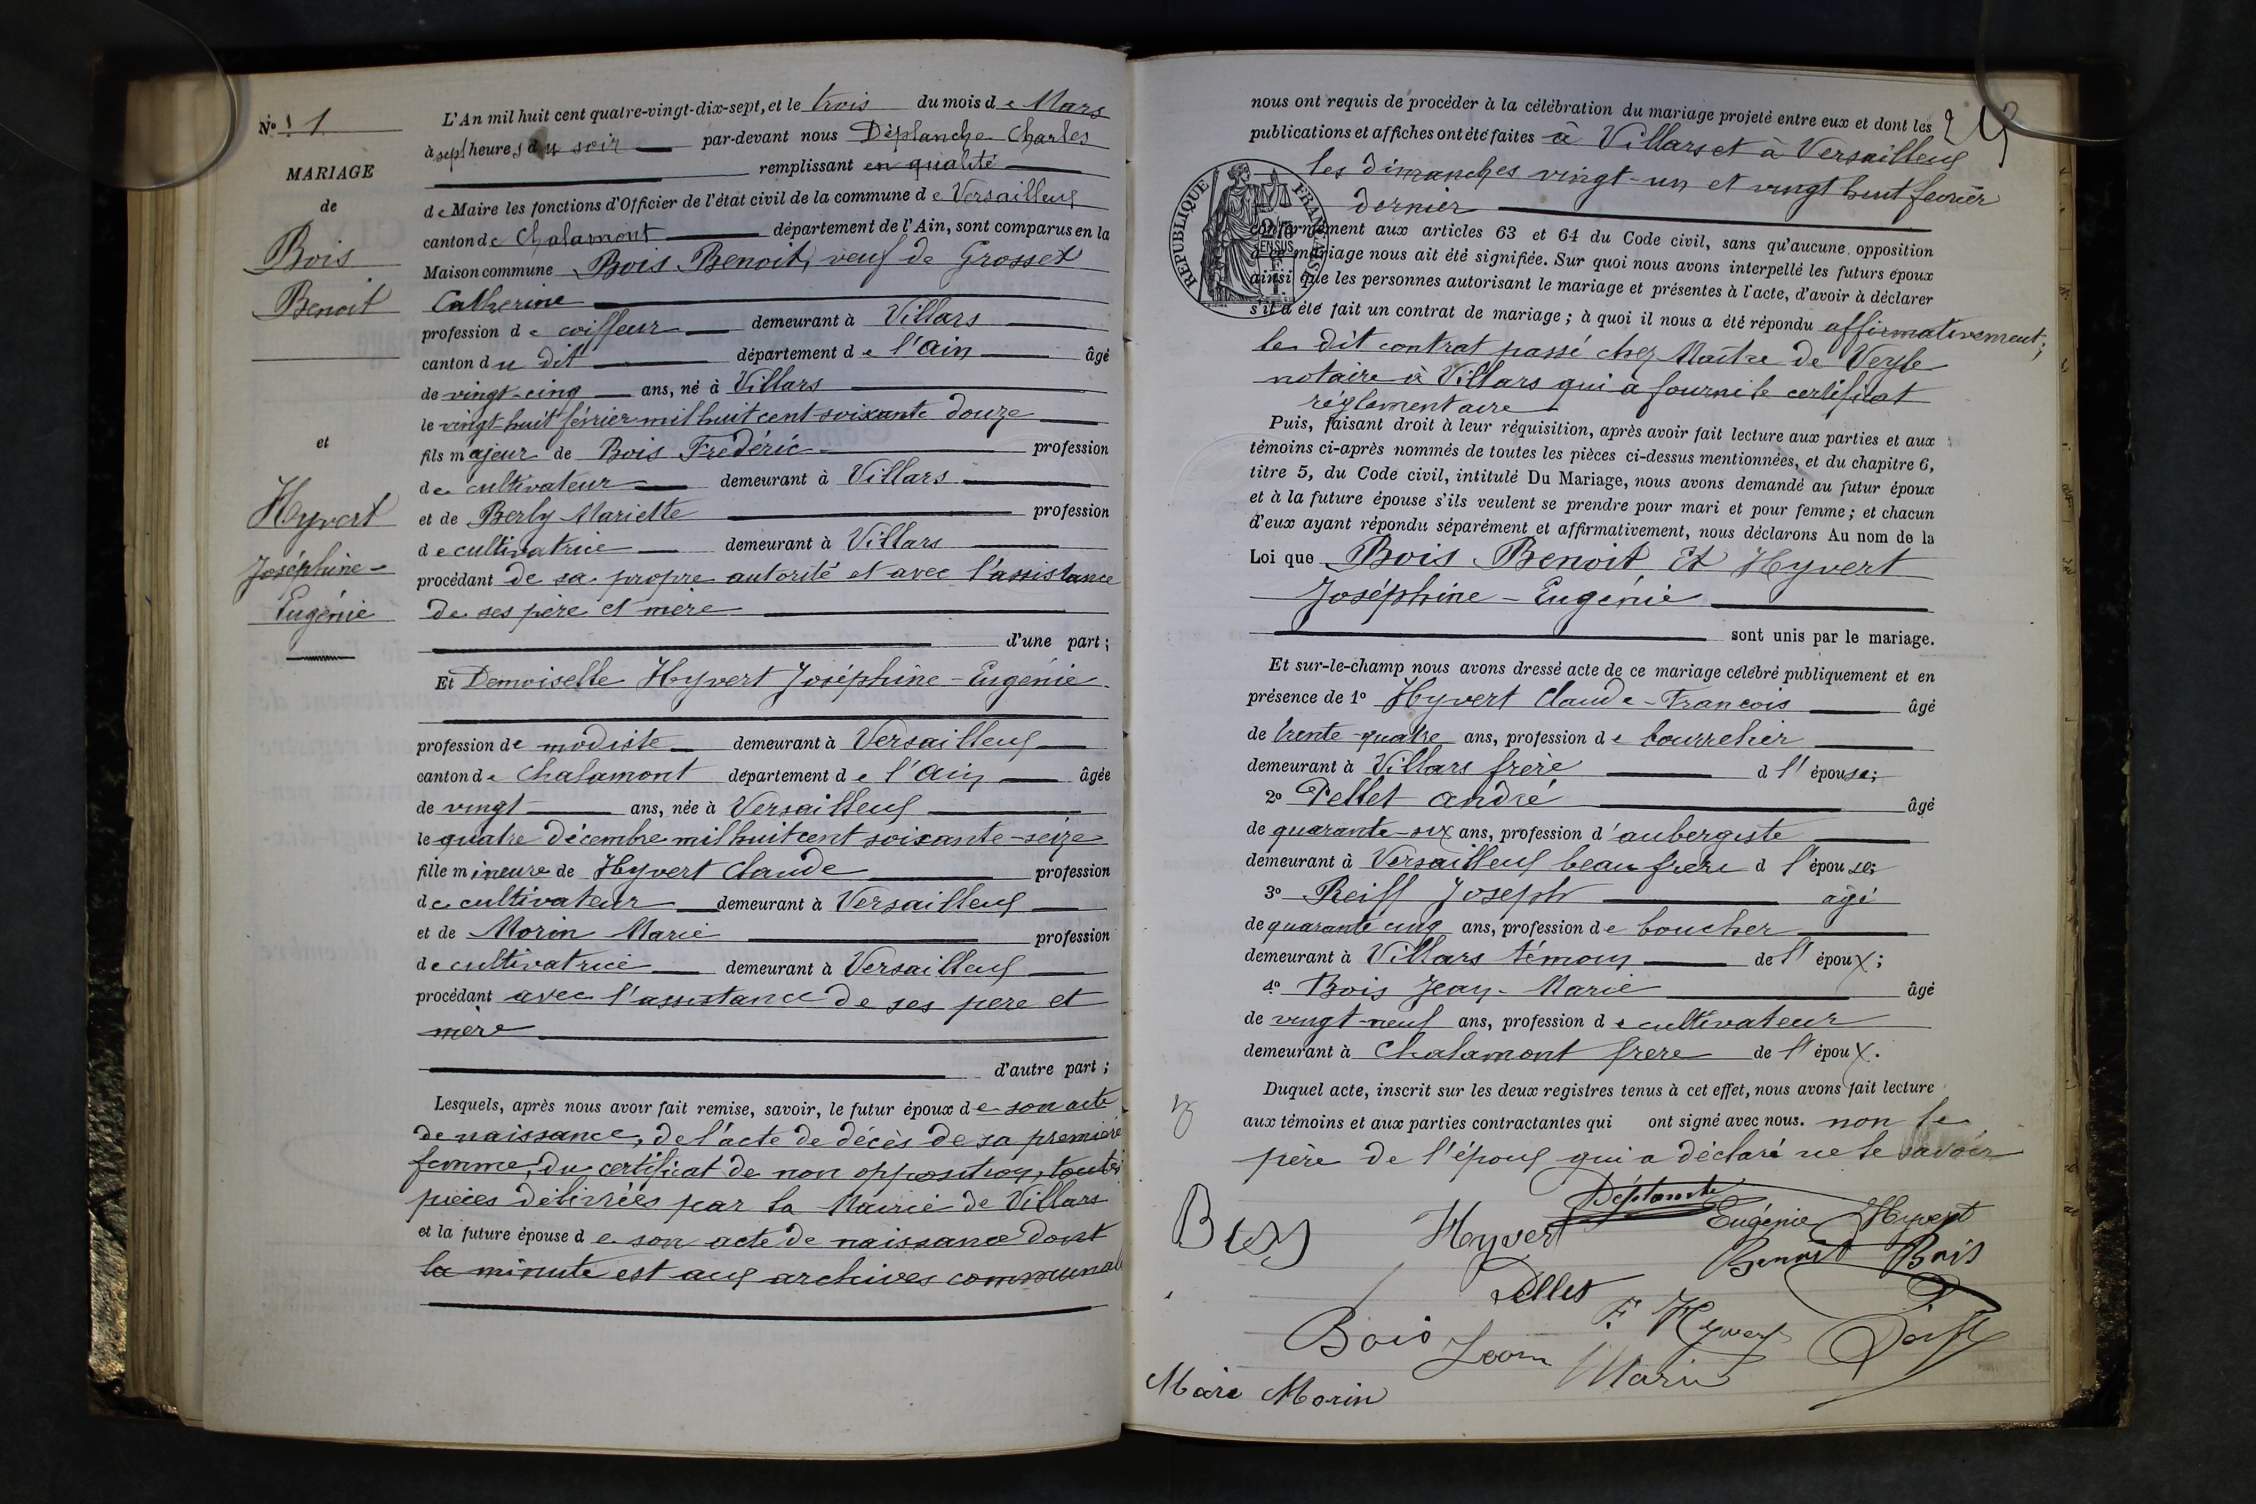 Nº 1
MARIAGE
de
Bois
Benoit
et
Hyvert
Joséphine-
Eugénie
L'An mil huit cent quatre-vingt-dix-sept, et le trois du mois de Mars
à sept heures du soir par-devant nous Déplanche Charles
remplissant en qualité
de Maire les fonctions d'Officier de l'état civil de la commune de Versailleux
canton de Chalamont département de l'Ain, sont comparus en la
Maison commune Bois Benoit, veuf de Grosset
Catherine
profession de coiffeur demeurant à Villars
canton du dit département de l'Ain âgé
de vingt-cinq ans, né à Villars
le vingt-huit février mil huit cent soixante douze
fils majeur de Bois Frédéric profession
de cultivateur demeurant à Villars
et de Berly Mariette profession
de cultivatrice demeurant à Villars
procédant de sa propre autorité et avec l'assistance
de ses père et mère
d'une part;
Et Demoiselle Hyvert Joséphine-Eugénie
profession de modiste demeurant à Versailleux
canton de Chalamont département de l'Ain âgée
de vingt ans, née à Versailleux
le quatre décembre mil huit cent soixante-seize
fille mineure de Hyvert Claude profession
de cultivateur demeurant à Versailleux
et de Morin Marie profession
de cultivatrice demeurant à Versailleux
procédant avec l'assistance de ses père et
mère
d'autre part;
Lesquels, après nous avoir fait remise, savoir, le futur époux de son acte
de naissance, de l'acte de décès de sa première
femme, du certificat de non opposition, toutes
pièces délivrées par la Mairie de Villars
et la future épouse de son acte de naissance dont
la minute est aux archives communales
nous ont requis de procéder à la célébration du mariage projeté entre eux et dont les
publications et affiches ont été faites à Villars et à Versailleux
les dimanches vingt-un et vingt huit février
dernier
RÉPUBLIQUE FRANÇAISE
conformément aux articles 63 et 64 du Code civil, sans qu'aucune opposition
à ce mariage nous ait été signifiée. Sur quoi nous avons interpellé les futurs époux
ainsi que les personnes autorisant le mariage et présentes à l'acte, d'avoir à déclarer
s'il a été fait un contrat de mariage; à quoi il nous a été répondu affirmativement;
le dit contrat passé chez Maître de Veyle
notaire à Villars qui a fourni le certificat
réglementaire
Puis, faisant droit à leur réquisition, après avoir fait lecture aux parties et aux
témoins ci-après nommés de toutes les pièces ci-dessus mentionnées, et du chapitre 6,
titre 5, du Code civil, intitulé Du Mariage, nous avons demandé au futur époux
et à la future épouse s'ils veulent se prendre pour mari et pour femme; et chacun
d'eux ayant répondu séparément et affirmativement, nous déclarons Au nom de la
Loi que Bois Benoit Et Hyvert
Joséphine-Eugénie
sont unis par le mariage.
Et sur-le-champ nous avons dressé acte de ce mariage célébré publiquement et en
présence de 1º Hyvert Claude-Francois âgé
de trente-quatre ans, profession de bourrelier
demeurant à Villars frère d l'épouse;
2º Pellet André âgé
de quarante-six ans, profession d'aubergiste
demeurant à Versailleux beau frère d l'épouse;
3º Reiff Joseph âgé
de quarante cinq ans, profession de boucher
demeurant à Villars témoin de l'époux;
4º Bois Jean-Marie âgé
de vingt-neuf ans, profession de cultivateur
demeurant à Chalamont frère de l'époux.
Duquel acte, inscrit sur les deux registres tenus à cet effet, nous avons fait lecture
aux témoins et aux parties contractantes qui ont signé avec nous. non le
père de l'époux qui a déclaré ne le savoir
Déplanche
Hyvert Eugénie Hyvert
Benoit Bois
Pellet
F. Hyvert
Bois Jean Marie
Marie Morin